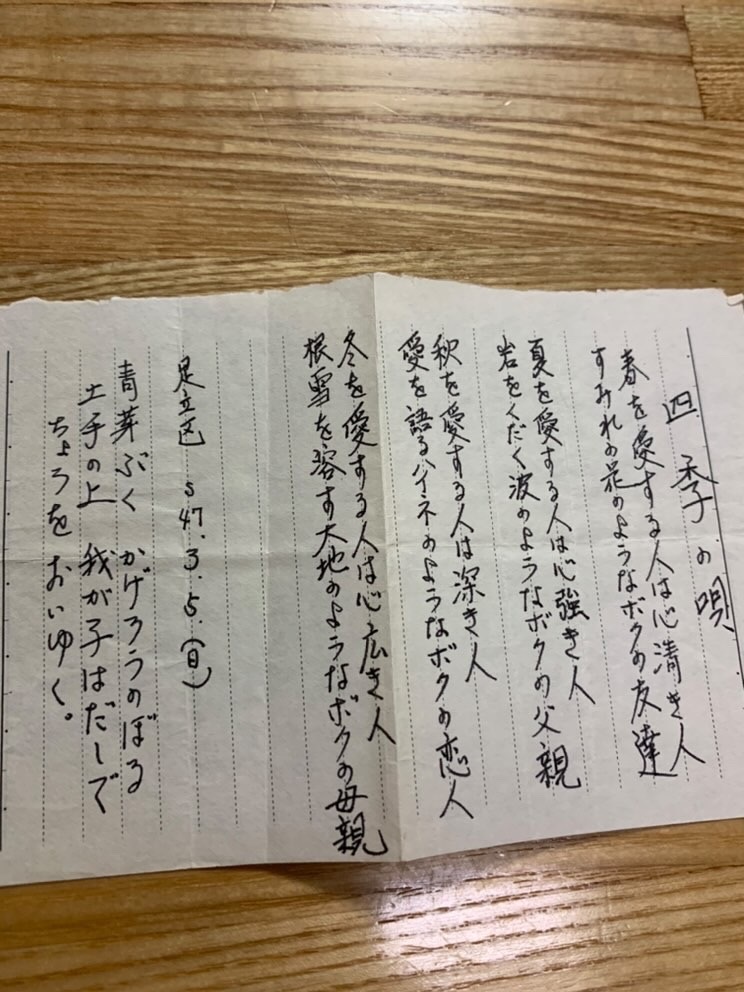 四季の唄
春を愛する人は心清き人
すみれの花のようなボクの友達
夏を愛する人は心強き人
岩をくだく波のようなボクの父親
秋を愛する人は深き人
愛を語るハイネのようなボクの恋人
冬を愛する人は心広き人
根雪を容す大地のようなボクの母親
足立区 S47.3.5.(日)
青芽ぶく かげろうのぼる
土手の上 我が子はだしで
ちょうを おいゆく。